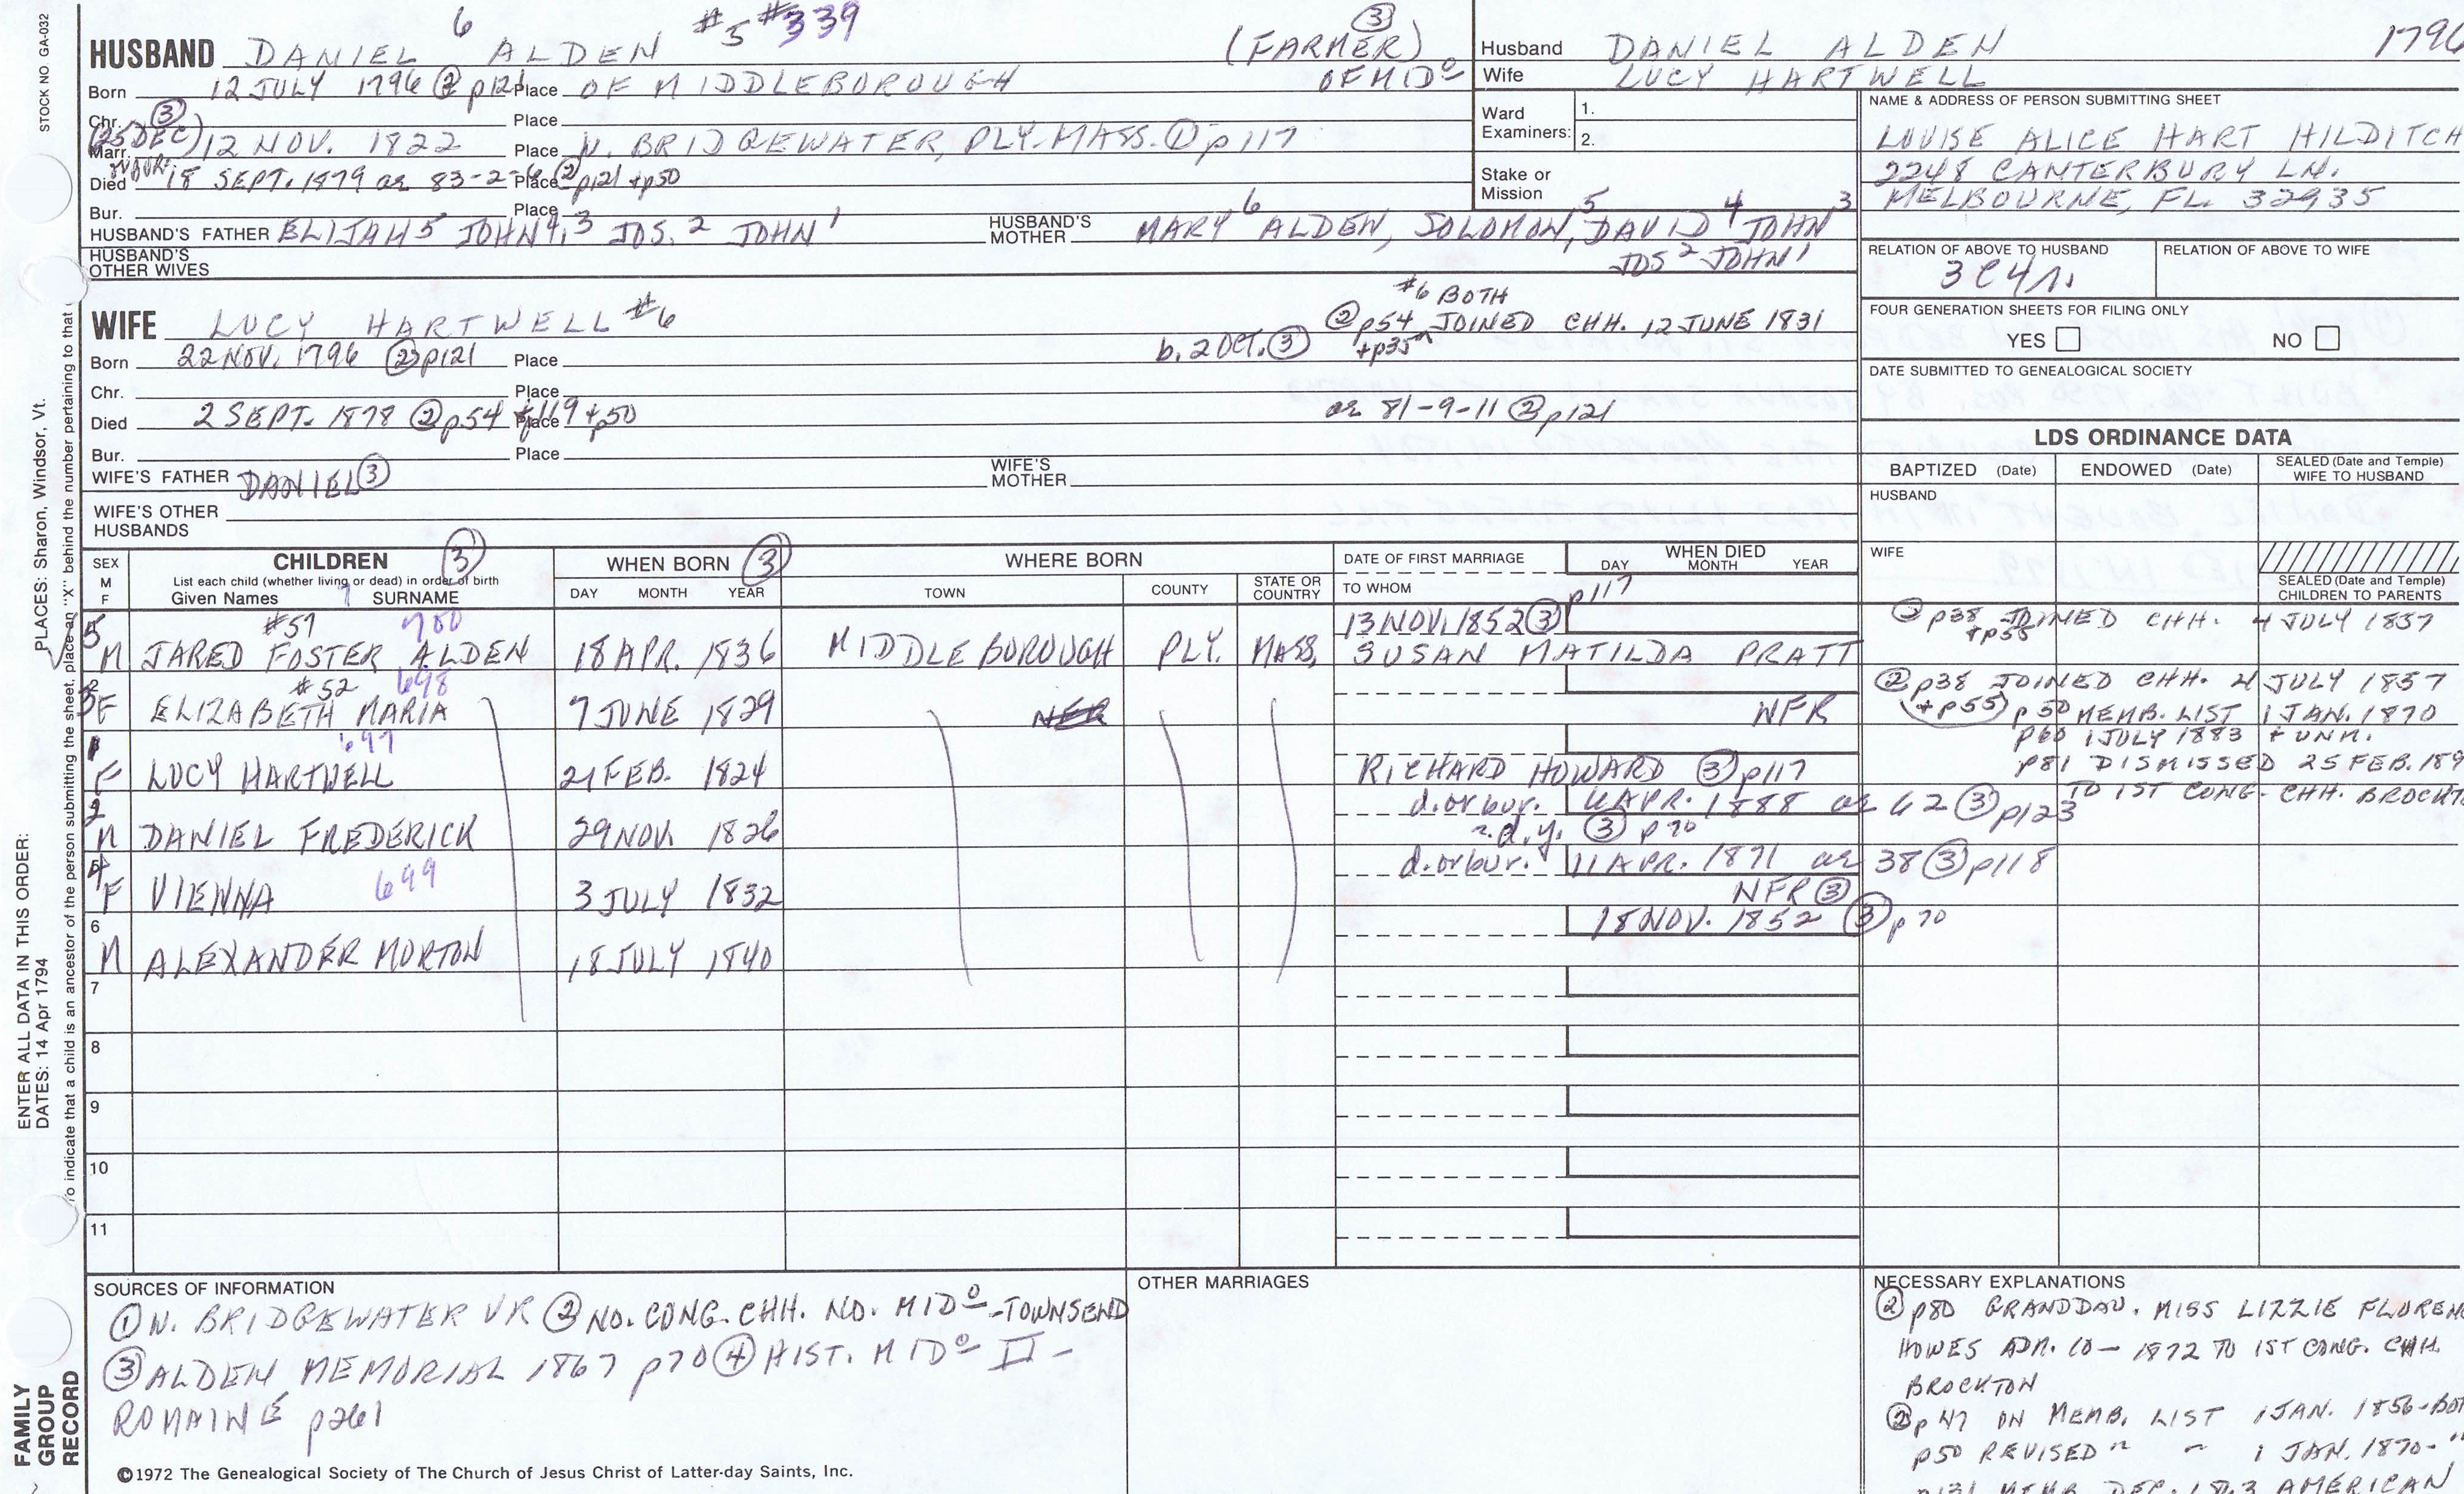 STOCK NO. GA-032
PLACES: Sharon, Windsor, Vt.
ENTER ALL DATA IN THIS ORDER:
DATES: 14 Apr 1794
To indicate that a child is an ancestor of the person submitting the sheet, place an "X" behind the number pertaining to that
FAMILY
GROUP
RECORD
6 #5 #339 (3)
HUSBAND DANIEL ALDEN (FARMER)
Born 12 JULY 1796 (2) p121 Place OF MIDDLEBOROUGH OF MIDO
Chr. (3) Place
(25 DEC)
Marr. 12 NOV. 1822 Place N. BRIDGEWATER, PLY-MASS. (1) p117
Died 18 SEPT. 1879 ae 83-2-6 Place (2) p121 + p50
Bur. Place
HUSBAND'S FATHER ELIJAH5 JOHN4,3 JOS.2 JOHN1 HUSBAND'S MOTHER MARY6 ALDEN, SOLOMON,5 DAVID4 JOHN3
JOS2 JOHN1
HUSBAND'S
OTHER WIVES
Husband DANIEL ALDEN 1796
Wife LUCY HARTWELL
Ward
Examiners: 1.
2.
Stake or
Mission
NAME & ADDRESS OF PERSON SUBMITTING SHEET
LOUISE ALICE HART HILDITCH
2248 CANTERBURY LN.
MELBOURNE, FL. 32935
RELATION OF ABOVE TO HUSBAND RELATION OF ABOVE TO WIFE
3C4r.
FOUR GENERATION SHEETS FOR FILING ONLY
YES NO
DATE SUBMITTED TO GENEALOGICAL SOCIETY
#6 BOTH
WIFE LUCY HARTWELL #6 (2) p54 JOINED CHH. 12 JUNE 1831
+p35
Born 22 NOV. 1796 (2) p121 Place b. 2 OCT. (3)
Chr. Place
Died 2 SEPT. 1878 (2) p54 + p119 + p50 Place ae 81-9-11 (2) p121
Bur. Place
WIFE'S FATHER DANIEL (3) WIFE'S MOTHER
WIFE'S OTHER
HUSBANDS
LDS ORDINANCE DATA
BAPTIZED (Date) ENDOWED (Date) SEALED (Date and Temple)
WIFE TO HUSBAND
HUSBAND
WIFE
SEALED (Date and Temple)
CHILDREN TO PARENTS
SEX
M
F
CHILDREN (3)
List each child (whether living or dead) in order of birth
Given Names 7 SURNAME
WHEN BORN (3)
DAY MONTH YEAR
WHERE BORN
TOWN COUNTY STATE OR COUNTRY
DATE OF FIRST MARRIAGE
TO WHOM
WHEN DIED
DAY MONTH YEAR
p117
5 #51 700 13 NOV. 1852 (3) (2) p38 JOINED CHH. 4 JULY 1857
+p55
M JARED FOSTER ALDEN 18 APR. 1836 MIDDLEBOROUGH PLY. MASS. SUSAN MATILDA PRATT
3 #52 698 (2) p38 JOINED CHH. 4 JULY 1857
F ELIZABETH MARIA 7 JUNE 1829 NFR (+p55) p50 MEMB. LIST 1 JAN. 1870
p60 1 JULY 1883 + UNM.
1 697
F LUCY HARTWELL 21 FEB. 1824 RICHARD HOWARD (3) p117 p81 DISMISSED 25 FEB. 189
TO 1ST CONG. CHH. BROCKT
2 d. or bur. APR. 1888 ae 62 (3) p123
d.y. (3) p70
M DANIEL FREDERICK 29 NOV. 1826
4 d. or bur. 11 APR. 1871 ae 38 (3) p118
F VIENNA 699 3 JULY 1832 NFR (3)
6 18 NOV. 1852 (3) p70
M ALEXANDER MORTON 18 JULY 1840
7
8
9
10
11
SOURCES OF INFORMATION
(1) N. BRIDGEWATER VR (2) NO. CONG. CHH. NO. MIDO-TOWNSEND
(3) ALDEN MEMORIAL 1867 p70 (4) HIST. MIDO II -
ROMAINE p261
©1972 The Genealogical Society of The Church of Jesus Christ of Latter-day Saints, Inc.
OTHER MARRIAGES
NECESSARY EXPLANATIONS
(2) p80 GRANDDAU. MISS LIZZIE FLOREN
HOWES ADM. 10- 1872 TO 1ST CONG. CHH.
BROCKTON
(2) p47 ON MEMB. LIST 1 JAN. 1856-BOT
p50 REVISED " " 1 JAN. 1870-"
p131 MEMB. DEC. AMERICAN